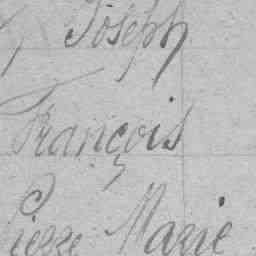 Joseph
François
Pierre Marie